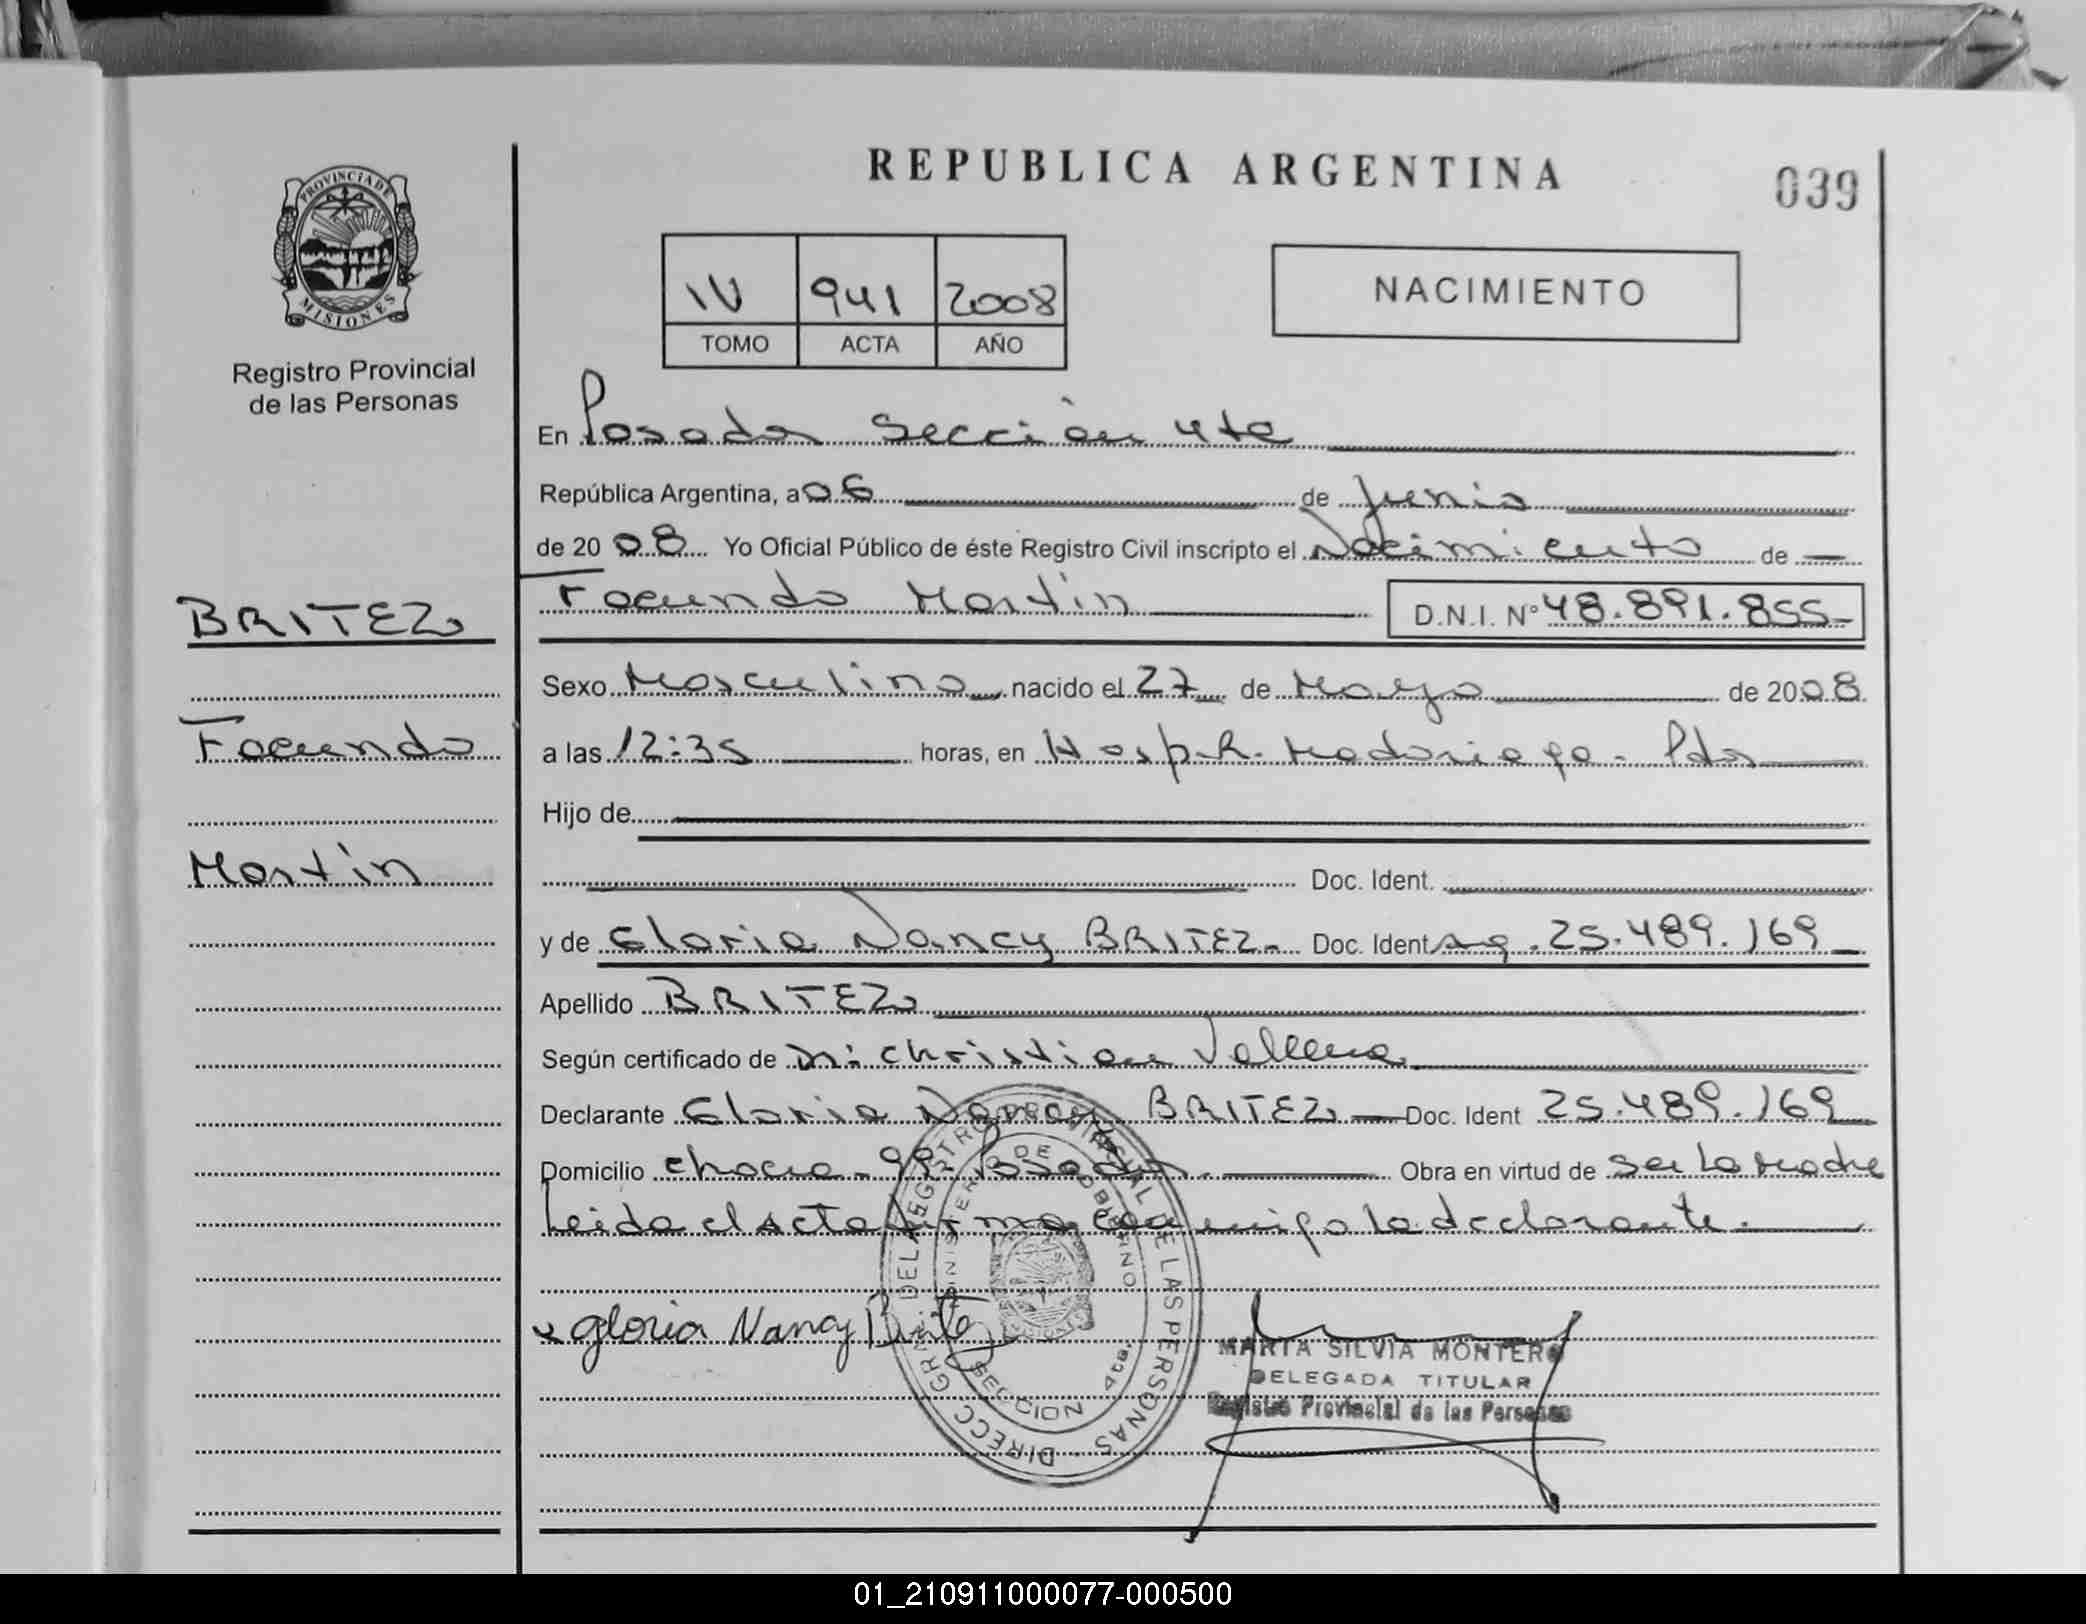 REPUBLICA ARGENTINA
039
PROVINCIA DE MISIONES
Registro Provincial
de las Personas
IV 941 2008
TOMO ACTA AÑO
NACIMIENTO
En Posadas Sección 4ta
República Argentina, a 06 de Junio
de 20 08 Yo Oficial Público de éste Registro Civil inscripto el Nacimiento de
Facundo Martin D.N.I. Nº 48.891.855
BRITEZ
Facundo
Martin
Sexo Masculino nacido el 27 de Mayo de 2008
a las 12:35 horas, en Hosp. R. Madariaga - Pdas
Hijo de
Doc. Ident.
y de Gloria Nancy BRITEZ Doc. Ident Arg. 25.489.169
Apellido BRITEZ
Según certificado de Dr: Christian
Declarante Gloria Nancy BRITEZ Doc. Ident 25.489.169
Domicilio Posadas. Obra en virtud de Ser La Madre
Leida el Acta firma conmigo la declarante.
gloria Nancy Britez
DIRECC. GRAL. DEL REGISTRO PROVINCIAL DE LAS PERSONAS
MINISTERIO DE GOBIERNO
SECCION 4ta.
MARTA SILVIA MONTERO
DELEGADA TITULAR
Registro Provincial de las Personas
01_210911000077-000500